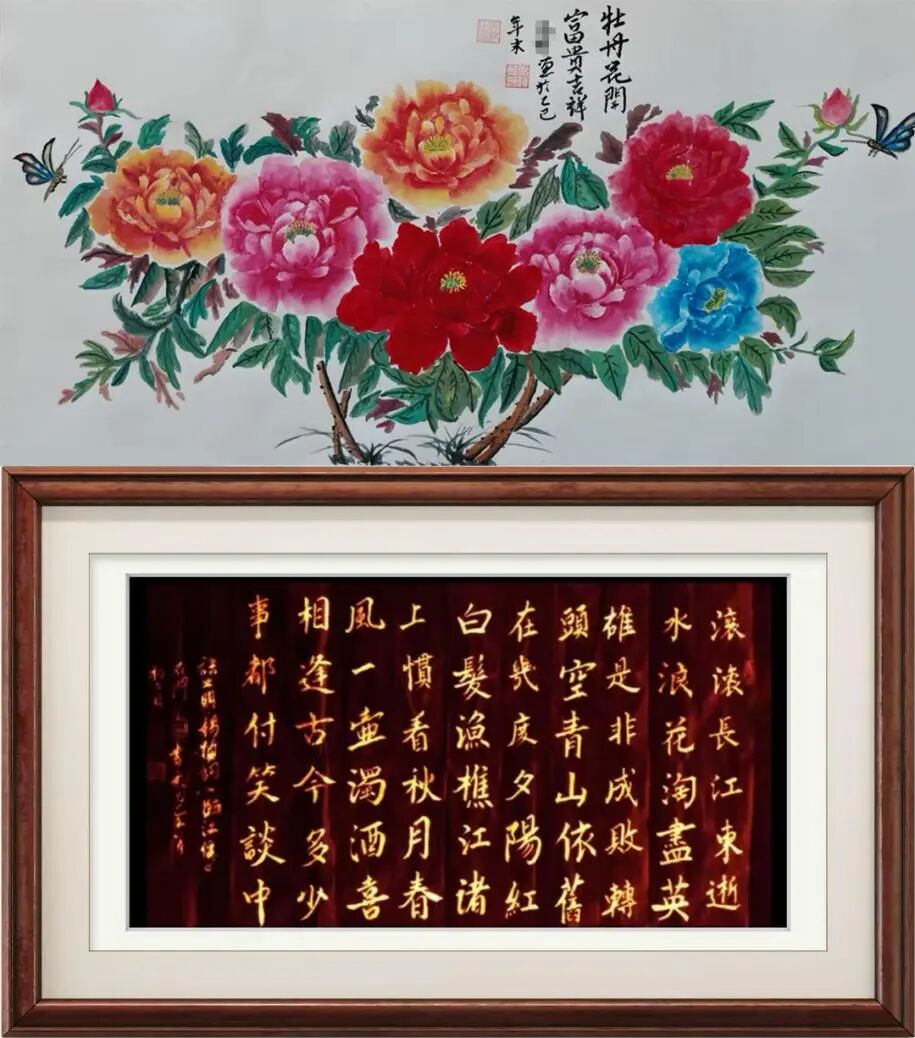 牡丹花開
富貴吉祥
画於乙巳
年末
滾滾長江東逝
水浪花淘盡英
雄是非成敗轉
頭空青山依舊
在幾度夕陽紅
白髮漁樵江诸
上慣看秋月春
風一壺濁酒喜
相逢古今多少
事都付笑談中